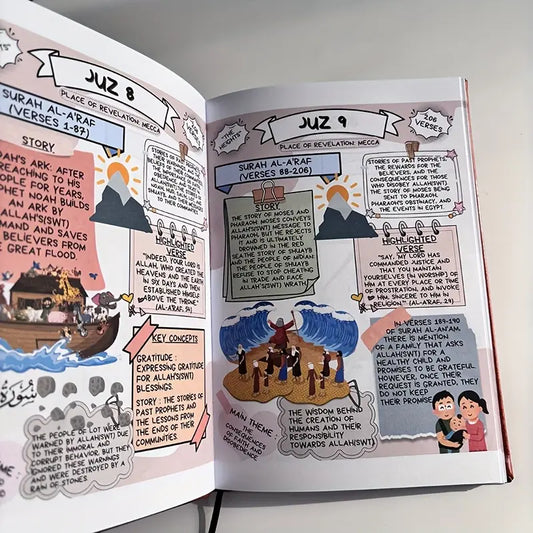 HEIGHTS"
JUZ 8
PLACE OF REVELATION: MECCA
SURAH AL-A'RAF
(VERSES 1-87)
STORY
AH'S ARK: AFTER
REACHING TO HIS
OPLE FOR YEARS,
PHET NOAH BUILDS
AN ARK BY
ALLAH'S(SWT)
MAND AND SAVES
BELIEVERS FROM
GREAT FLOOD.
STORIES OF PAST
PROPHETS,
HIGHLIGHTED
VERSE
"INDEED, YOUR LORD IS
ALLAH, WHO CREATED THE
HEAVENS AND THE EARTH
IN SIX DAYS AND THEN
ESTABLISHED HIMSELF
ABOVE THE THRONE."
(AL-A'RAF, 54)
KEY CONCEPTS
GRATITUDE :
EXPRESSING GRATITUDE
FOR ALLAH'S(SWT)
BLESSINGS.
STORY : THE STORIES OF
PAST PROPHETS AND
THE LESSONS FROM
THE ENDS OF THEIR
COMMUNITIES.
سورة
THE PEOPLE OF LOT WERE
WARNED BY ALLAH(SWT) DUE
TO THEIR IMMORAL AND
CORRUPT BEHAVIOR, BUT THEY
IGNORED THESE WARNINGS
AND WERE DESTROYED BY A
RAIN OF STONES
"THE
HEIGHTS"
JUZ 9
PLACE OF REVELATION: MECCA
206
VERSES
SURAH AL-A'RAF
(VERSES 88-206)
STORY
THE STORY OF MOSES AND
PHARAOH. MOSES CONVEYS
ALLAH'S(SWT) MESSAGE TO
PHARAOH, BUT HE REJECTS
IT AND IS ULTIMATELY
DROWNED IN THE RED
SEA.THE STORY OF SHUAYB
AND THE PEOPLE OF MIDIAN:
THE PEOPLE OF SHUAYB
REFUSE TO STOP CHEATING
IN TRADE AND FACE
ALLAH'S(SWT) WRATH.
STORIES OF PAST PROPHETS,
THE REWARDS FOR THE
BELIEVERS, AND THE
CONSEQUENCES FOR THOSE
WHO DISOBEY ALLAH(SWT).
THE STORY OF MOSES BEING
SENT TO PHARAOH,
PHARAOH'S OBSTINACY, AND
THE EVENTS IN EGYPT.
HIGHLIGHTED
VERSE
"SAY, 'MY LORD HAS
COMMANDED JUSTICE AND
THAT YOU MAINTAIN
YOURSELVES (IN WORSHIP) OF
HIM AT EVERY PLACE OR TIME
OF PROSTRATION, AND INVOKE
HIM, SINCERE TO HIM IN
RELIGION.'" (AL-A'RAF, 29)
IN VERSES 189-190
OF SURAH AL-AN'AM,
THERE IS MENTION
OF A FAMILY THAT ASKS
ALLAH(SWT) FOR A
HEALTHY CHILD AND
PROMISES TO BE GRATEFUL.
HOWEVER, ONCE THEIR
REQUEST IS GRANTED, THEY
DO NOT KEEP
THEIR PROMISE
MAIN THEME :
THE
CONSEQUENCES
OF FAITH AND
DISOBEDIENCE
THE WISDOM BEHIND
THE CREATION OF
HUMANS AND THEIR
RESPONSIBILITY
TOWARDS ALLAH(SWT)